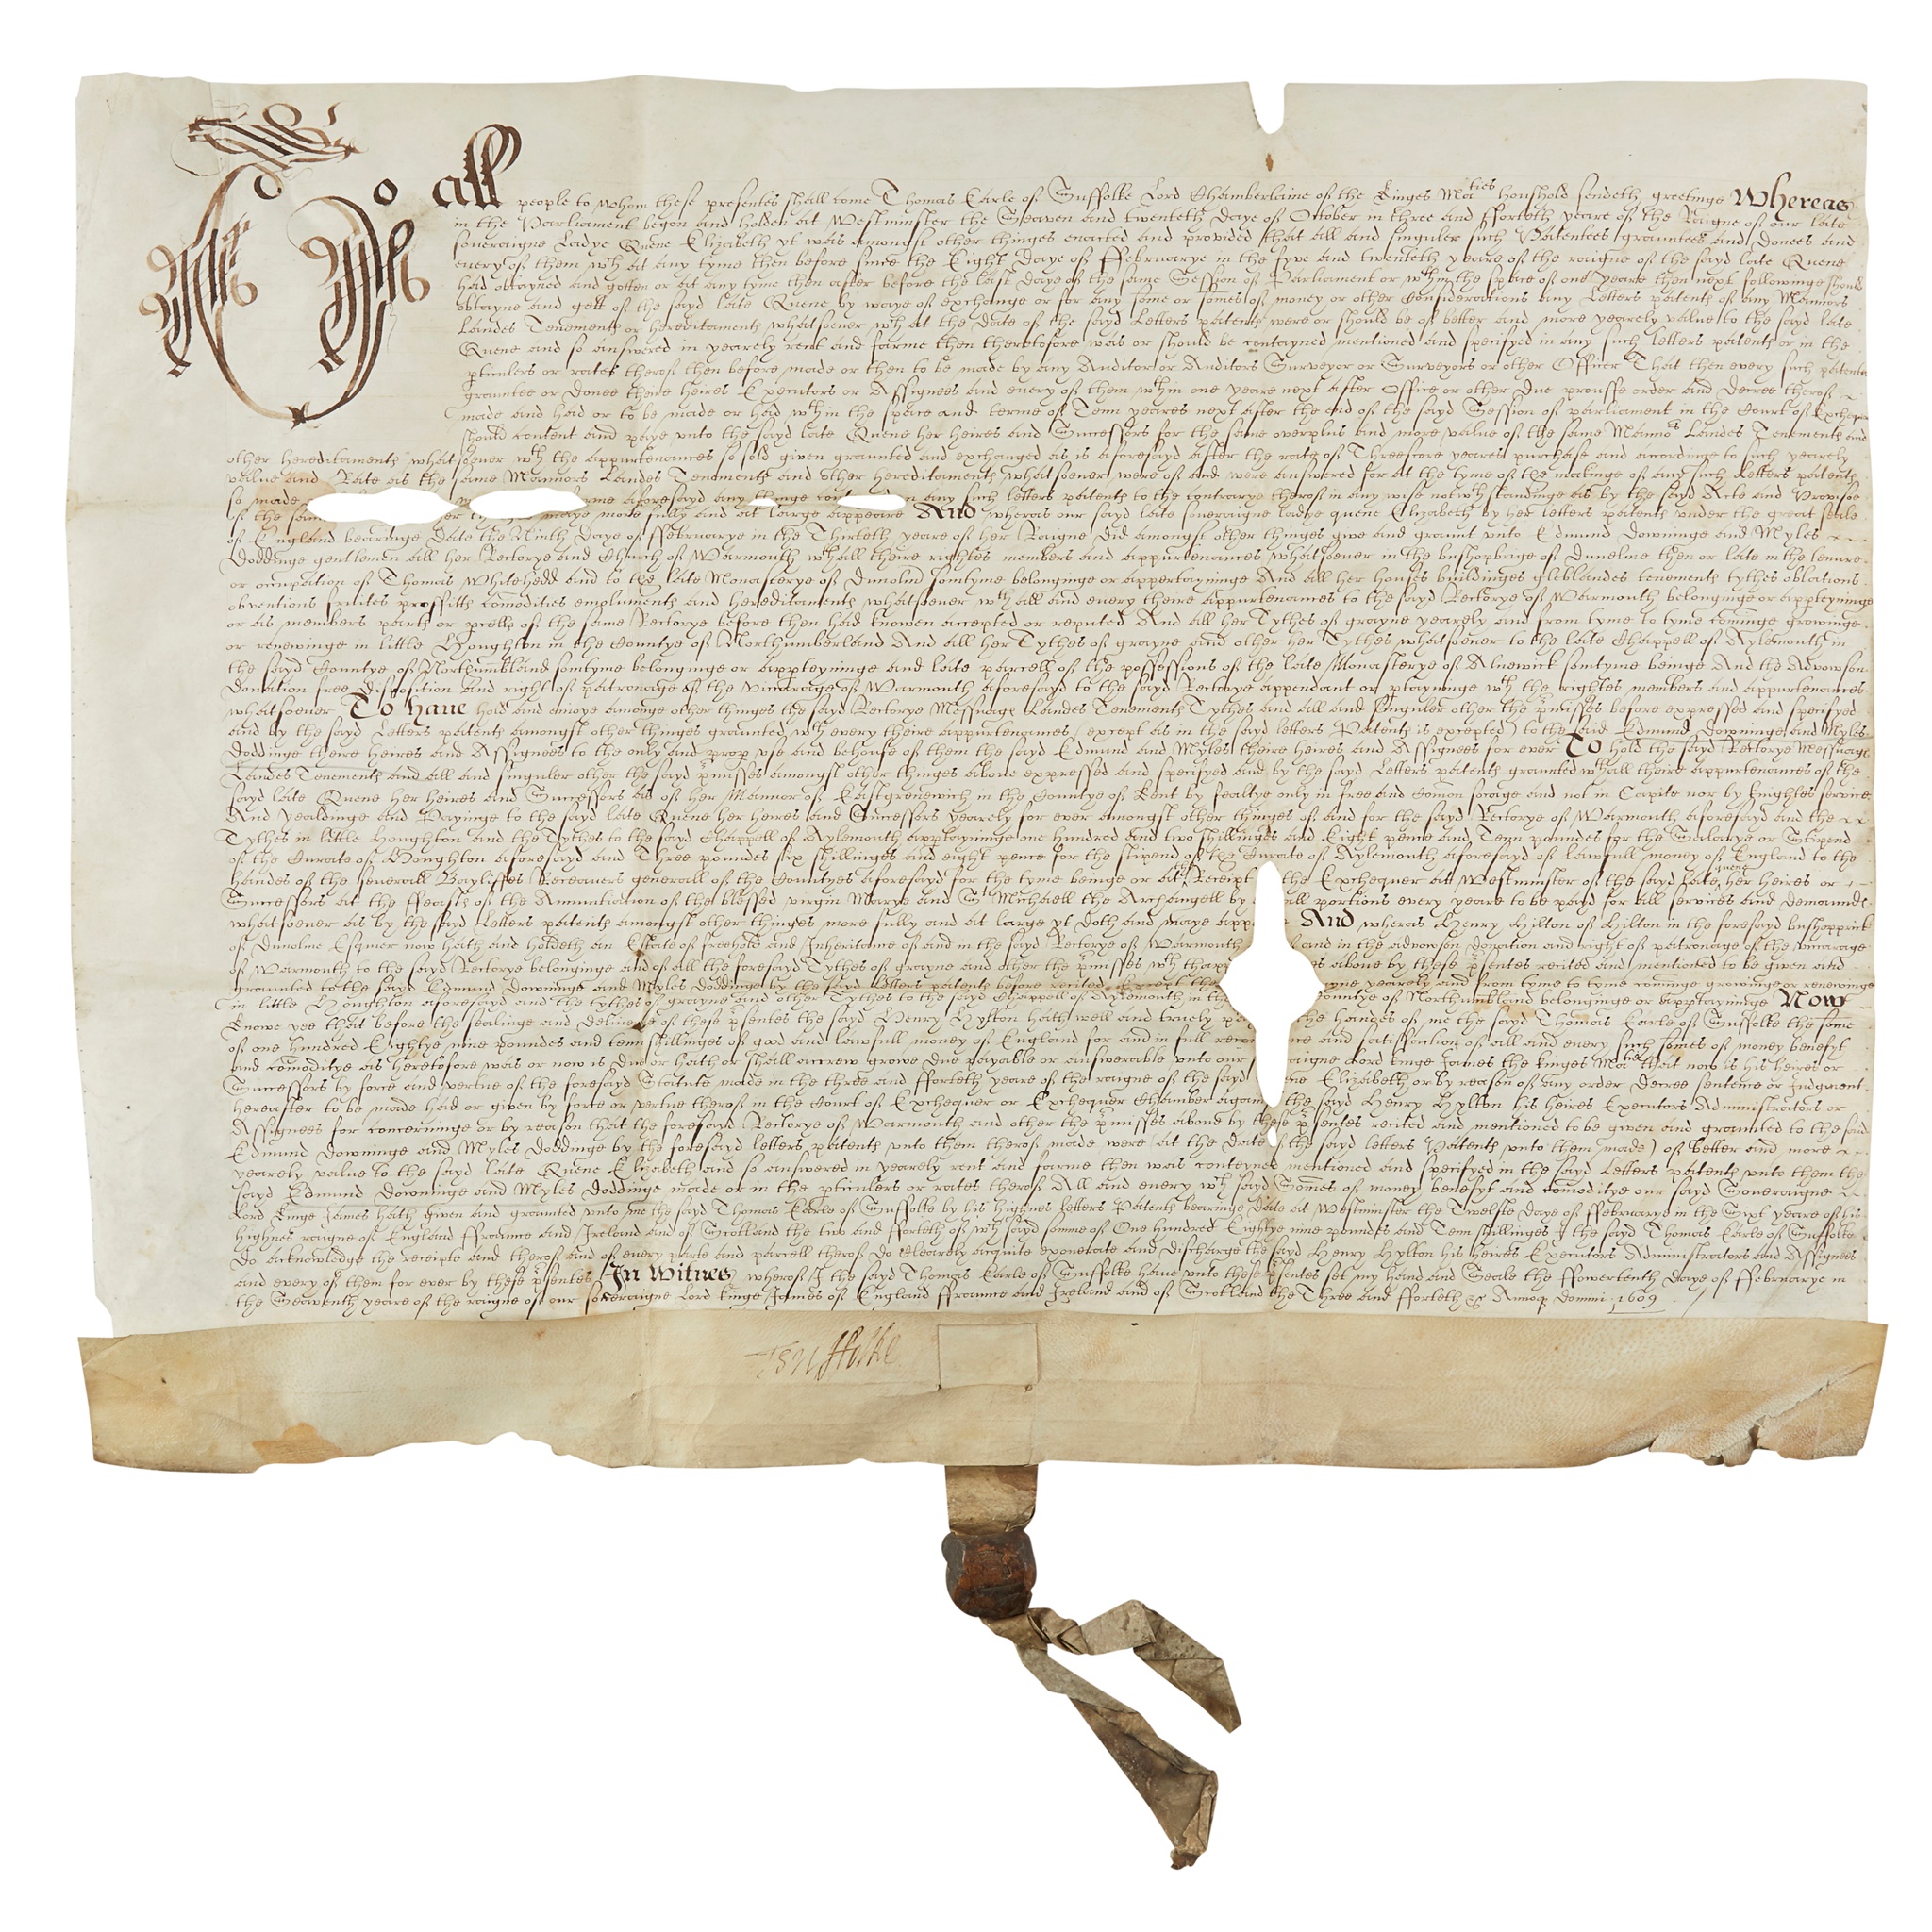 To all people to whom these presentes shall come Thomas Earle of Suffolke Lord Chamberlaine of the Kinges Maties houshold sendeth greetinge Whereas
in the Parliament begon and holden at Westminster the Seaven and twenteth Daye of October in three and fforteth yeare of the Raigne of our late
soveraigne Ladye Quene Elizabeth yt was amongst other thinges enacted and provided that all and singuler such Patentees grauntees and Donees and
every of them wch at any tyme then before since the Eight Daye of ffebruarye in the fyve and twenteth yeare of the raigne of the sayd late Quene
had obtayned and gotten or at any tyme then after before the last Daye of the same Session of Parliament or wthin the space of one yeare then next followinge should
obtayne and gett of the sayd late Quene by waye of exchange or for any some or somes of money or other Considerations any Letters patents of any Mannors
Landes Tenements or hereditaments whatsoever wch at the Date of the sayd Letters patents were or should be of better and more yearely value to the sayd late
Quene and so answered in yearely rent and farme then theretofore was or should be contayned mentioned and specifyed in any such letters patents or in the
pticulers or rates therof then before made or then to be made by any Auditor or Auditors Surveyor or Surveyors or other Officer That then every such patentee
grauntee or Donee theire heires Executors or Assignees and every of them wthin one yeare next after Office or other Due prouffe order and Decree therof
made and had or to be made or had wthin the space and terme of Tenn yeares next after the end of the sayd Session of parliament in the Court of Exchequer
should content and paye unto the sayd late Quene her heires and Successors for the same overplus and more value of the same Mannors Landes Tenements and
other hereditaments whatsoever wth the appurtenances so sold given graunted and exchanged as is aforesayd after the rate of Threescore yeares purchase and accordinge to such yearely
value and Rate as the same Mannors Landes Tenements and other hereditaments whatsoever were of and were answered for at the tyme of the makinge of any such Letters patents
so made aforesayd any thinge in any such letters patents to the contrarye therof in any wise notwthstandinge as by the sayd Acte and Proviso
of the maye more fully and at large appeare And wheras our sayd late soveraigne ladye quene Elizabeth by her letters patents under the great seale
of England bearinge Date the Ninth Daye of ffebruarye in the Thirteth yeare of her Raigne Did amongst other thinges give and graunt unto Edmund Downinge and Myles
Doddinge gentlemen all her Rectorye and Church of Warmouth wth all theire rightes members and appurtenances whatsoever in the bushopbrige of Dunelme then or late in the tenure
or occupation of Thomas Whitehedd and to the late Monasterye of Dunolm somtyme belonginge or appertayninge And all her houses buildinges gleblandes tenements tythes oblations
obventions fruites proffitts comodities emoluments and hereditaments whatsoever wth all and every theire appurtenances to the sayd Rectorye of Warmouth belonginge or appteyninge
or as members parts or pcells of the same Rectorye before then had knowen accepted or reputed And all her Tythes of grayne yearely and from tyme to tyme cominge growinge
or renewinge in little Houghton in the Countye of Northumberland And all her Tythes of grayne and other her Tythes whatsoever to the late Chappell of Aylemouth in
the sayd Countye of Northumbland somtyme belonginge or appteyninge and late parcell of the possessions of the late Monasterye of Alnewick somtyme beinge And the Advowson
Donation free Disposition and right of patronage of the vicarage of Warmouth aforesayd to the sayd Rectorye appendant or ptayninge wth the rightes members and appurtenances
whatsoever To have hold and enioye amonge other thinges the sayd Rectorye Messuage Landes Tenements Tythes and all and singuler other the pmisses before expressed and specifyed
and by the sayd Letters patents amongst other thinges graunted wth every theire appurtenances (except as in the sayd letters Patents is excepted) to the said Edmund Downinge and Myles
Doddinge theire heires and Assignees to the only and prop use and behoofe of them the sayd Edmund and Myles theire heires and Assignees for ever To hold the sayd Rectorye Messuage
Landes Tenements and all and singuler other the sayd pmisses amongst other thinges above expressed and specifyed and by the sayd Letters patents graunted wth all theire appurtenances of the
sayd late Quene her heires and Successors as of her Mannor of Eastgrenewich in the Countye of Kent by fealtye only in free and Comon socage and not in Capite nor by knightes service
And yealdinge and Payinge to the sayd late Quene her heires and Successors yearely for ever amongst other thinges of and for the sayd Rectorye of Warmouth aforesayd and the
Tythes in little Houghton and the Tythes to the sayd Chappell of Aylemouth apptayninge one hundred and two shillinges and Eight pence and Tenn poundes for the Salarye or Stipend
of the Curate of Houghton aforesayd and Three poundes six shillinges and eight pence for the stipend of the Curate of Aylemouth aforesayd of lawfull money of England to the
handes of the severall Bayliffes Receavers generall of the Countyes aforesayd for the tyme beinge or at the Receipt the Exchequer at Westminster of the sayd late quene her heires or
Successors at the ffeasts of the Annuntiation of the blessed virgin Marye and St Michaell the Archangell by portions every yeare to be payd for all services and demaunds
whatsoever as by the sayd Letters patents amongst other thinges more fully and at large yt doth and maye And wheras Henry Hilton of Hilton in the foresayd bushopprick
of Dunolme Esquier now hath and holdeth an Estate of freehold and Inheritance of and in the sayd Rectorye of Warmouth and in the advowson donation and right of patronage of the vicarage
of Warmouth to the sayd Rectorye belonginge and of all the foresayd Tythes of grayne and other the pmisses wth above by these psentes recited and mentioned to be given and
graunted to the sayd Edmund Downinge and Myles Doddinge by the sayd Letters patents before recited Except the yearely and from tyme to tyme cominge growinge or renewinge
in little Houghton aforesayd and the tythes of grayne and other Tythes to the sayd Chappell of Aylemouth in the Countye of Northumbland belonginge or apptayninge Now
Knowe yee that before the sealinge and delivery of these psentes the sayd Henry Hylton hath well and truely the handes of me the sayd Thomas Earle of Suffolke the some
of one hundred Eightye nine poundes and tenn shillinges of good and lawfull money of England for and in full and satisfaction of all and every such somes of money benefyt
and comoditye as heretofore was or now is Due or hath or shall accrew growe due payable or answerable unto our Lord kinge James the kinges Matie that now is his heires or
Successors by force and vertue of the foresayd Statute made in the three and fforteth yeare of the raigne of the sayd Elizabeth or by reason of any order Decree sentence or Judgment
hereafter to be made had or given by force or vertue therof in the Court of Exchequer or Exchequer Chamber against the sayd Henry Hylton his heires Executors Administrators or
Assignees for concerninge or by reason that the foresayd Rectorye of Warmouth and other the pmisses above by these psentes recited and mentioned to be given and graunted to the said
Edmund Downinge and Myles Doddinge by the foresayd letters patents unto them therof made were (at the Date of the sayd letters Patents unto them made) of better and more
yearely value to the sayd late Quene Elizabeth and so answered in yearely rent and farme then was conteyned mentioned and specifyed in the sayd Letters patents unto them the
sayd Edmund Downinge and Myles Doddinge made or in the pticulers or rates therof All and every wch sayd Somes of money benefyt and comoditye our sayd Soveraigne
Lord Kinge James hath given and graunted unto me the sayd Thomas Earle of Suffolke by his highnes letters Patents bearinge Date at Westminster the Twelfte Daye of ffebruarye in the Sixt yeare of his
highnes raigne of England ffraunce and Ireland and of Scotland the two and fforteth of wch sayd somme of One hundred Eightye nine poundes and Tenn shillinges I the sayd Thomas Earle of Suffolke
Do acknowledge the receipte and therof and of every parte and parcell therof Do Clearely acquite exonerate and Discharge the sayd Henry Hylton his heires Executors Administrators and Assignees
and every of them for ever by these psentes In Witnes wherof I the sayd Thomas Earle of Suffolke have unto these psentes set my hand and Seale the ffowertenth Daye of ffebruarye in
the Seaventh yeare of the raigne of our soveraigne Lord kinge James of England ffraunce and Ireland and of Scotland the Three and fforteth &c Annoq Domini 1609
TSuffolke